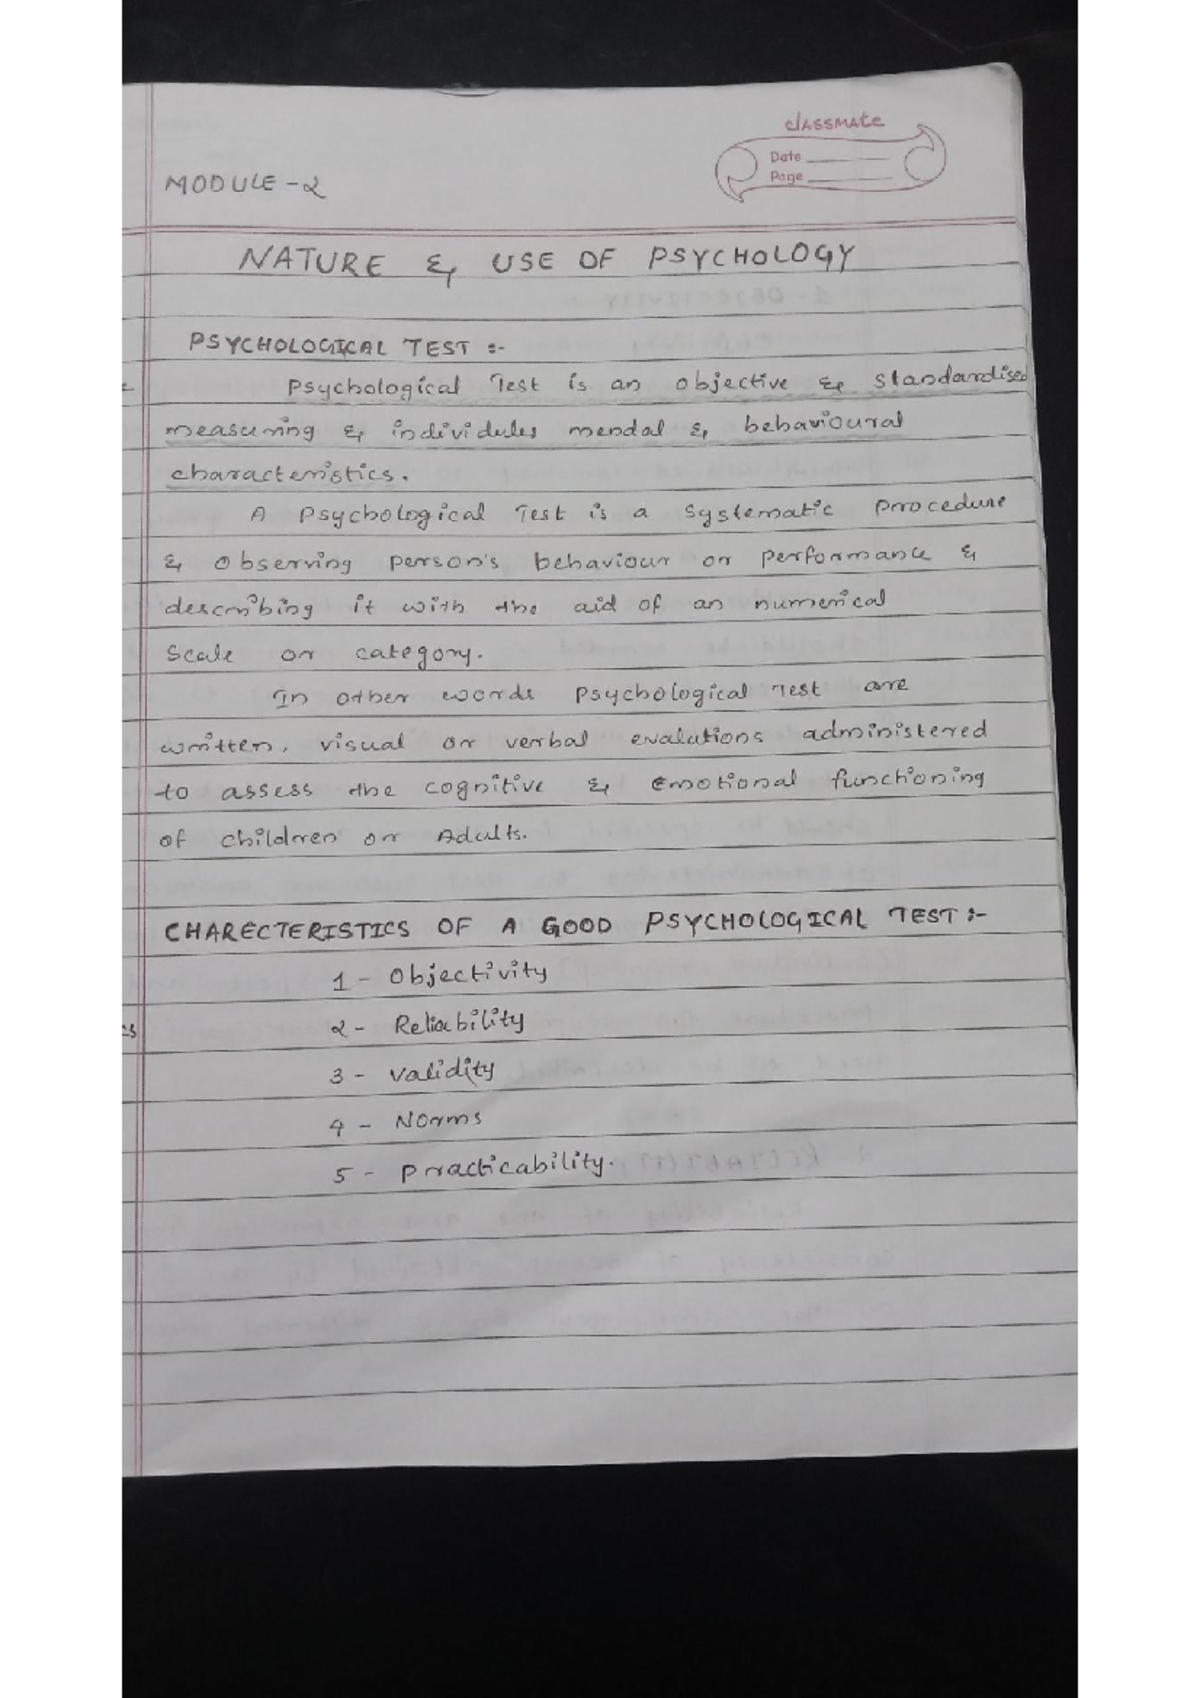 classmate
Date
Page
MODULE - 2
NATURE & USE OF PSYCHOLOGY
PSYCHOLOGICAL TEST :-
Psychological Test is an objective & standardised
measuring & individules mendal & behavioural
characteristics.
A Psychological Test is a systematic procedure
& observing person's behaviour or performance &
describing it with the aid of an numerical
scale or category.
In other words psychological Test are
written, visual or verbal evalutions administered
to assess the cognitive & Emotional functioning
of children or Adults.
CHARECTERISTICS OF A GOOD PSYCHOLOGICAL TEST :-
1 - Objectivity
2 - Reliability
3 - Validity
4 - Norms
5 - Practicability.